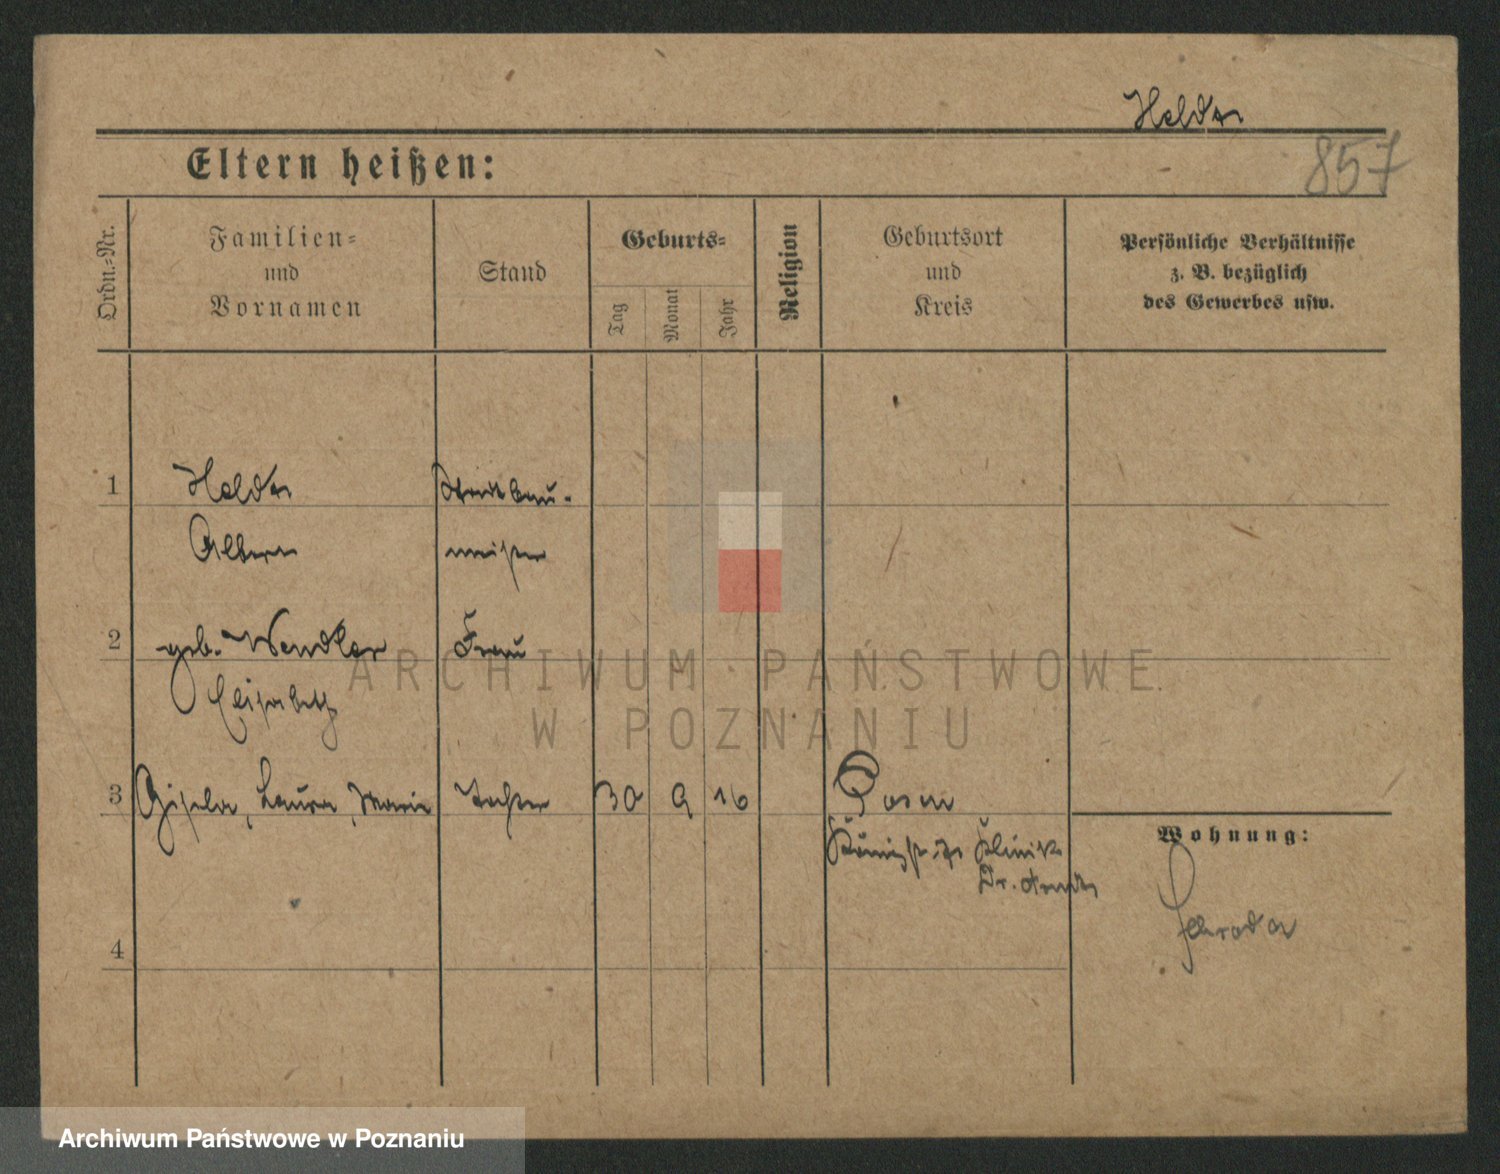 Helda
857
Eltern heißen:
Ordn.-Nr.
Familien-
und
Vornamen
Stand
Geburts-
Tag
Monat
Jahr
Religion
Geburtsort
und
Kreis
Persönliche Verhältnisse
z. B. bezüglich
des Gewerbes usw.
1
Stadtbau-
meister
2
geb. Wendler
Frau
Elisabeth
3
Gisela, Laura, Marie
Tochter
30
9
16
Posen
Klinik
Dr.
Wohnung:
Schroda
4
ARCHIWUM PAŃSTWOWE
W POZNANIU
Archiwum Państwowe w Poznaniu